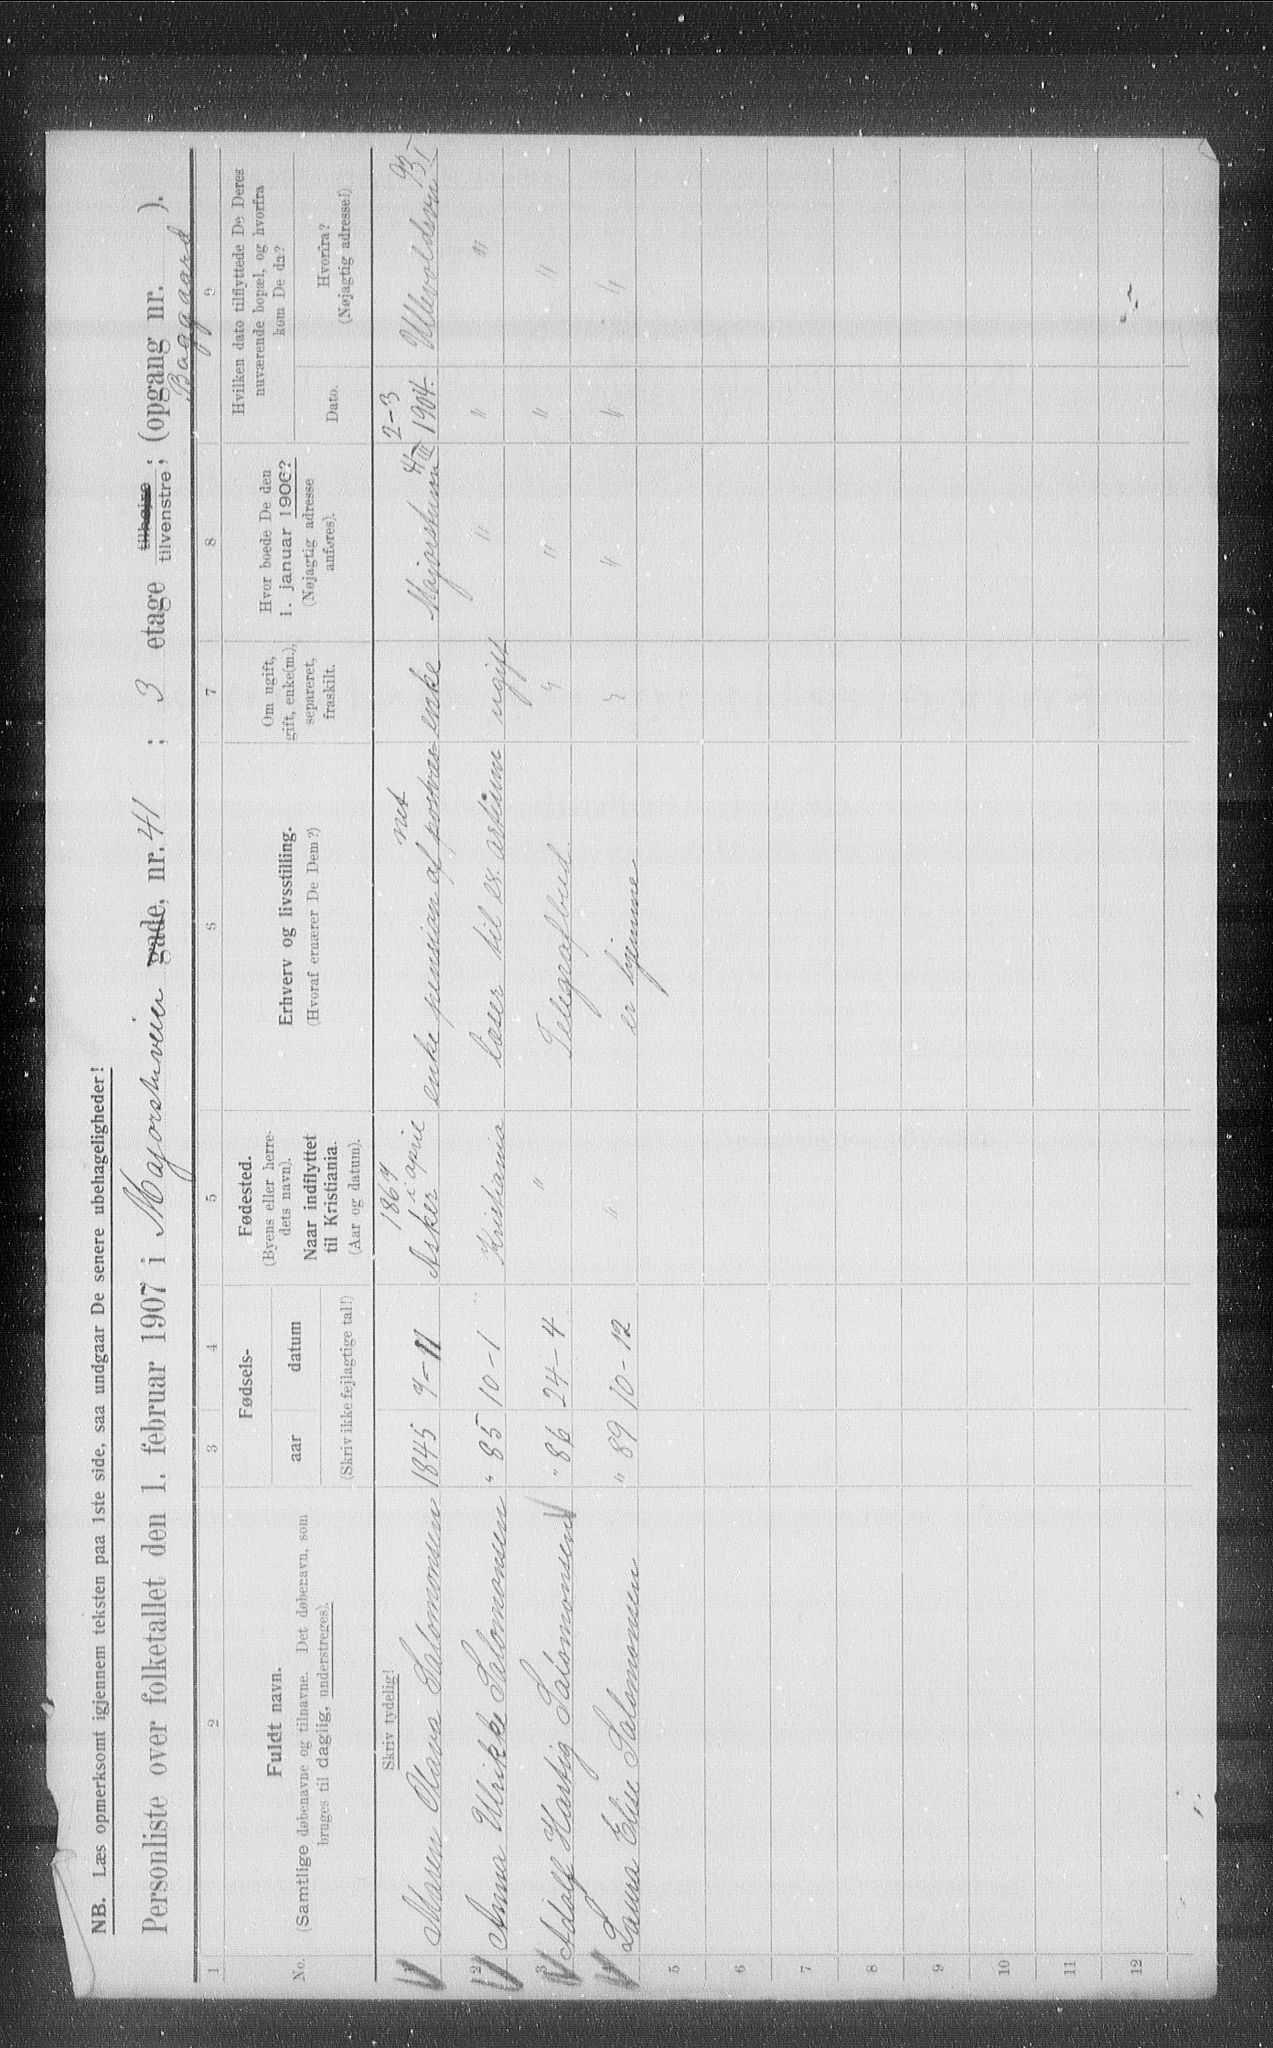 NB. Læs opmerksomt igjennem teksten paa 1ste side, saa undgaar De senere ubehageligheder!
Personliste over folketallet den 1. februar 1907 i Majorstuveien gade, nr. 41 ; 3 etage tilhøjre tilvenstre; (opgang nr. ).
Baggaard
1 2 3 4 5 6 7 8 9
No.
Fuldt navn.
(Samtlige døbenavne og tilnavne. Det døbenavn, som
bruges til daglig, understreges).
Fødsels-
aar datum
(Skriv ikke fejlagtige tal!)
Fødested.
(Byens eller herre-
dets navn).
Naar indflyttet
til Kristiania.
(Aar og datum).
Erhverv og livsstilling.
(Hvoraf ernærer De Dem?)
Om ugift,
gift, enke(m.),
separeret,
fraskilt.
Hvor boede De den
1. januar 1906?
(Nøjagtig adresse
anføres).
Hvilken dato tilflyttede De Deres
nuværende bopæl, og hvorfra
kom De da?
Dato.
Hvorfra?
(Nøjagtig adresse!)
Skriv tydelig!
1 Maren Olava Salomonsen 1845 9-11 Asker april 1864 enke pension af postvæsnet enke 2-3 1904.
2 Anna Ulrikke Salomonsen " 85 10-1 Kristiania læser til ex. artium ugift " " "
3 Adolf Hartvig Salomonsen " 86 24-4 " Telegrafbud " " " "
4 Laura Elise Salomonsen " 89 10-12 " er hjemme " " " "
5
6
7
8
9
10
11
12